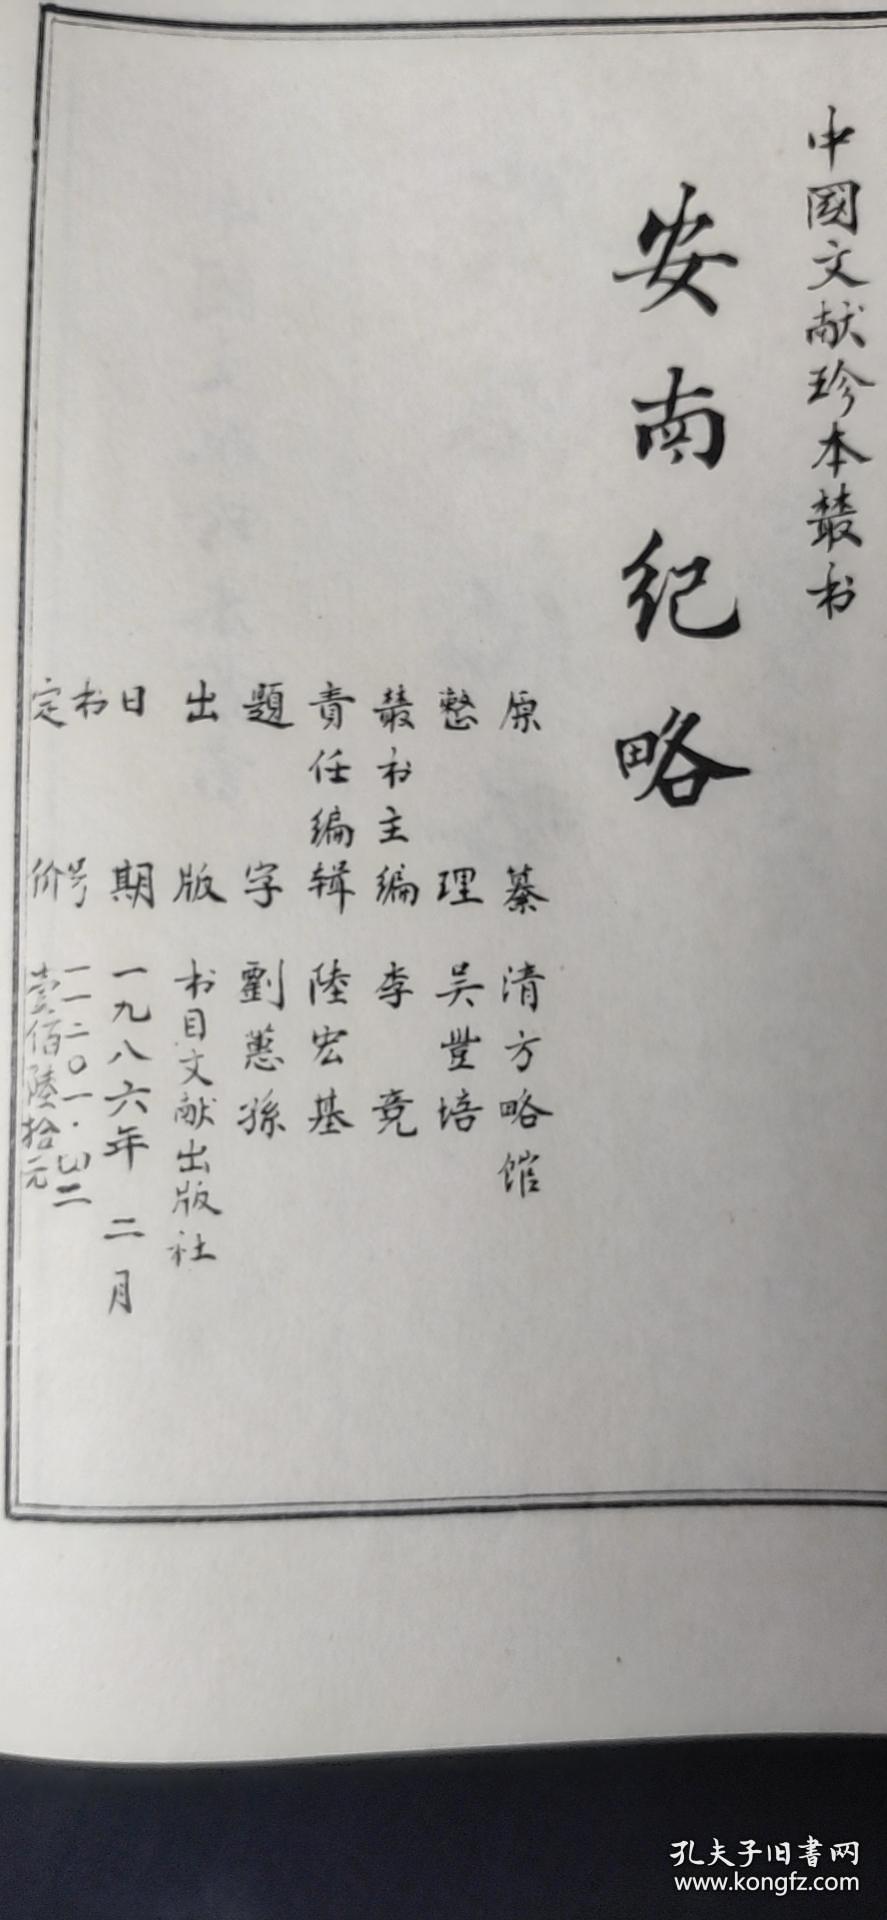 中國文献珍本叢书
安南纪略
原纂 清方略馆
整理 吴豐培
叢书主编 李竞
責任编辑 陸宏基
題字 劉蕙孫
出版 书目文献出版社
日期 一九八六年二月
书号 一一二〇一·四二
定价 壹佰陸拾元
孔夫子旧書网
www.kongfz.com